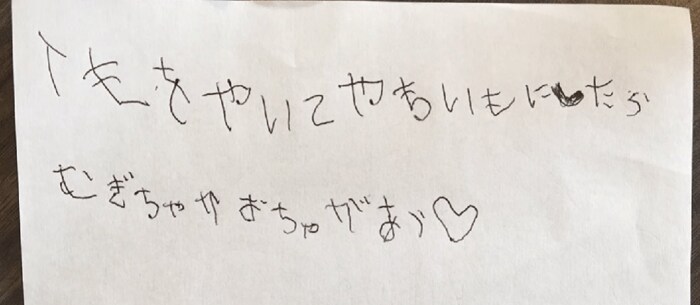 いもをやいてやきいもにしたら
むぎちゃかおちゃがあう♡